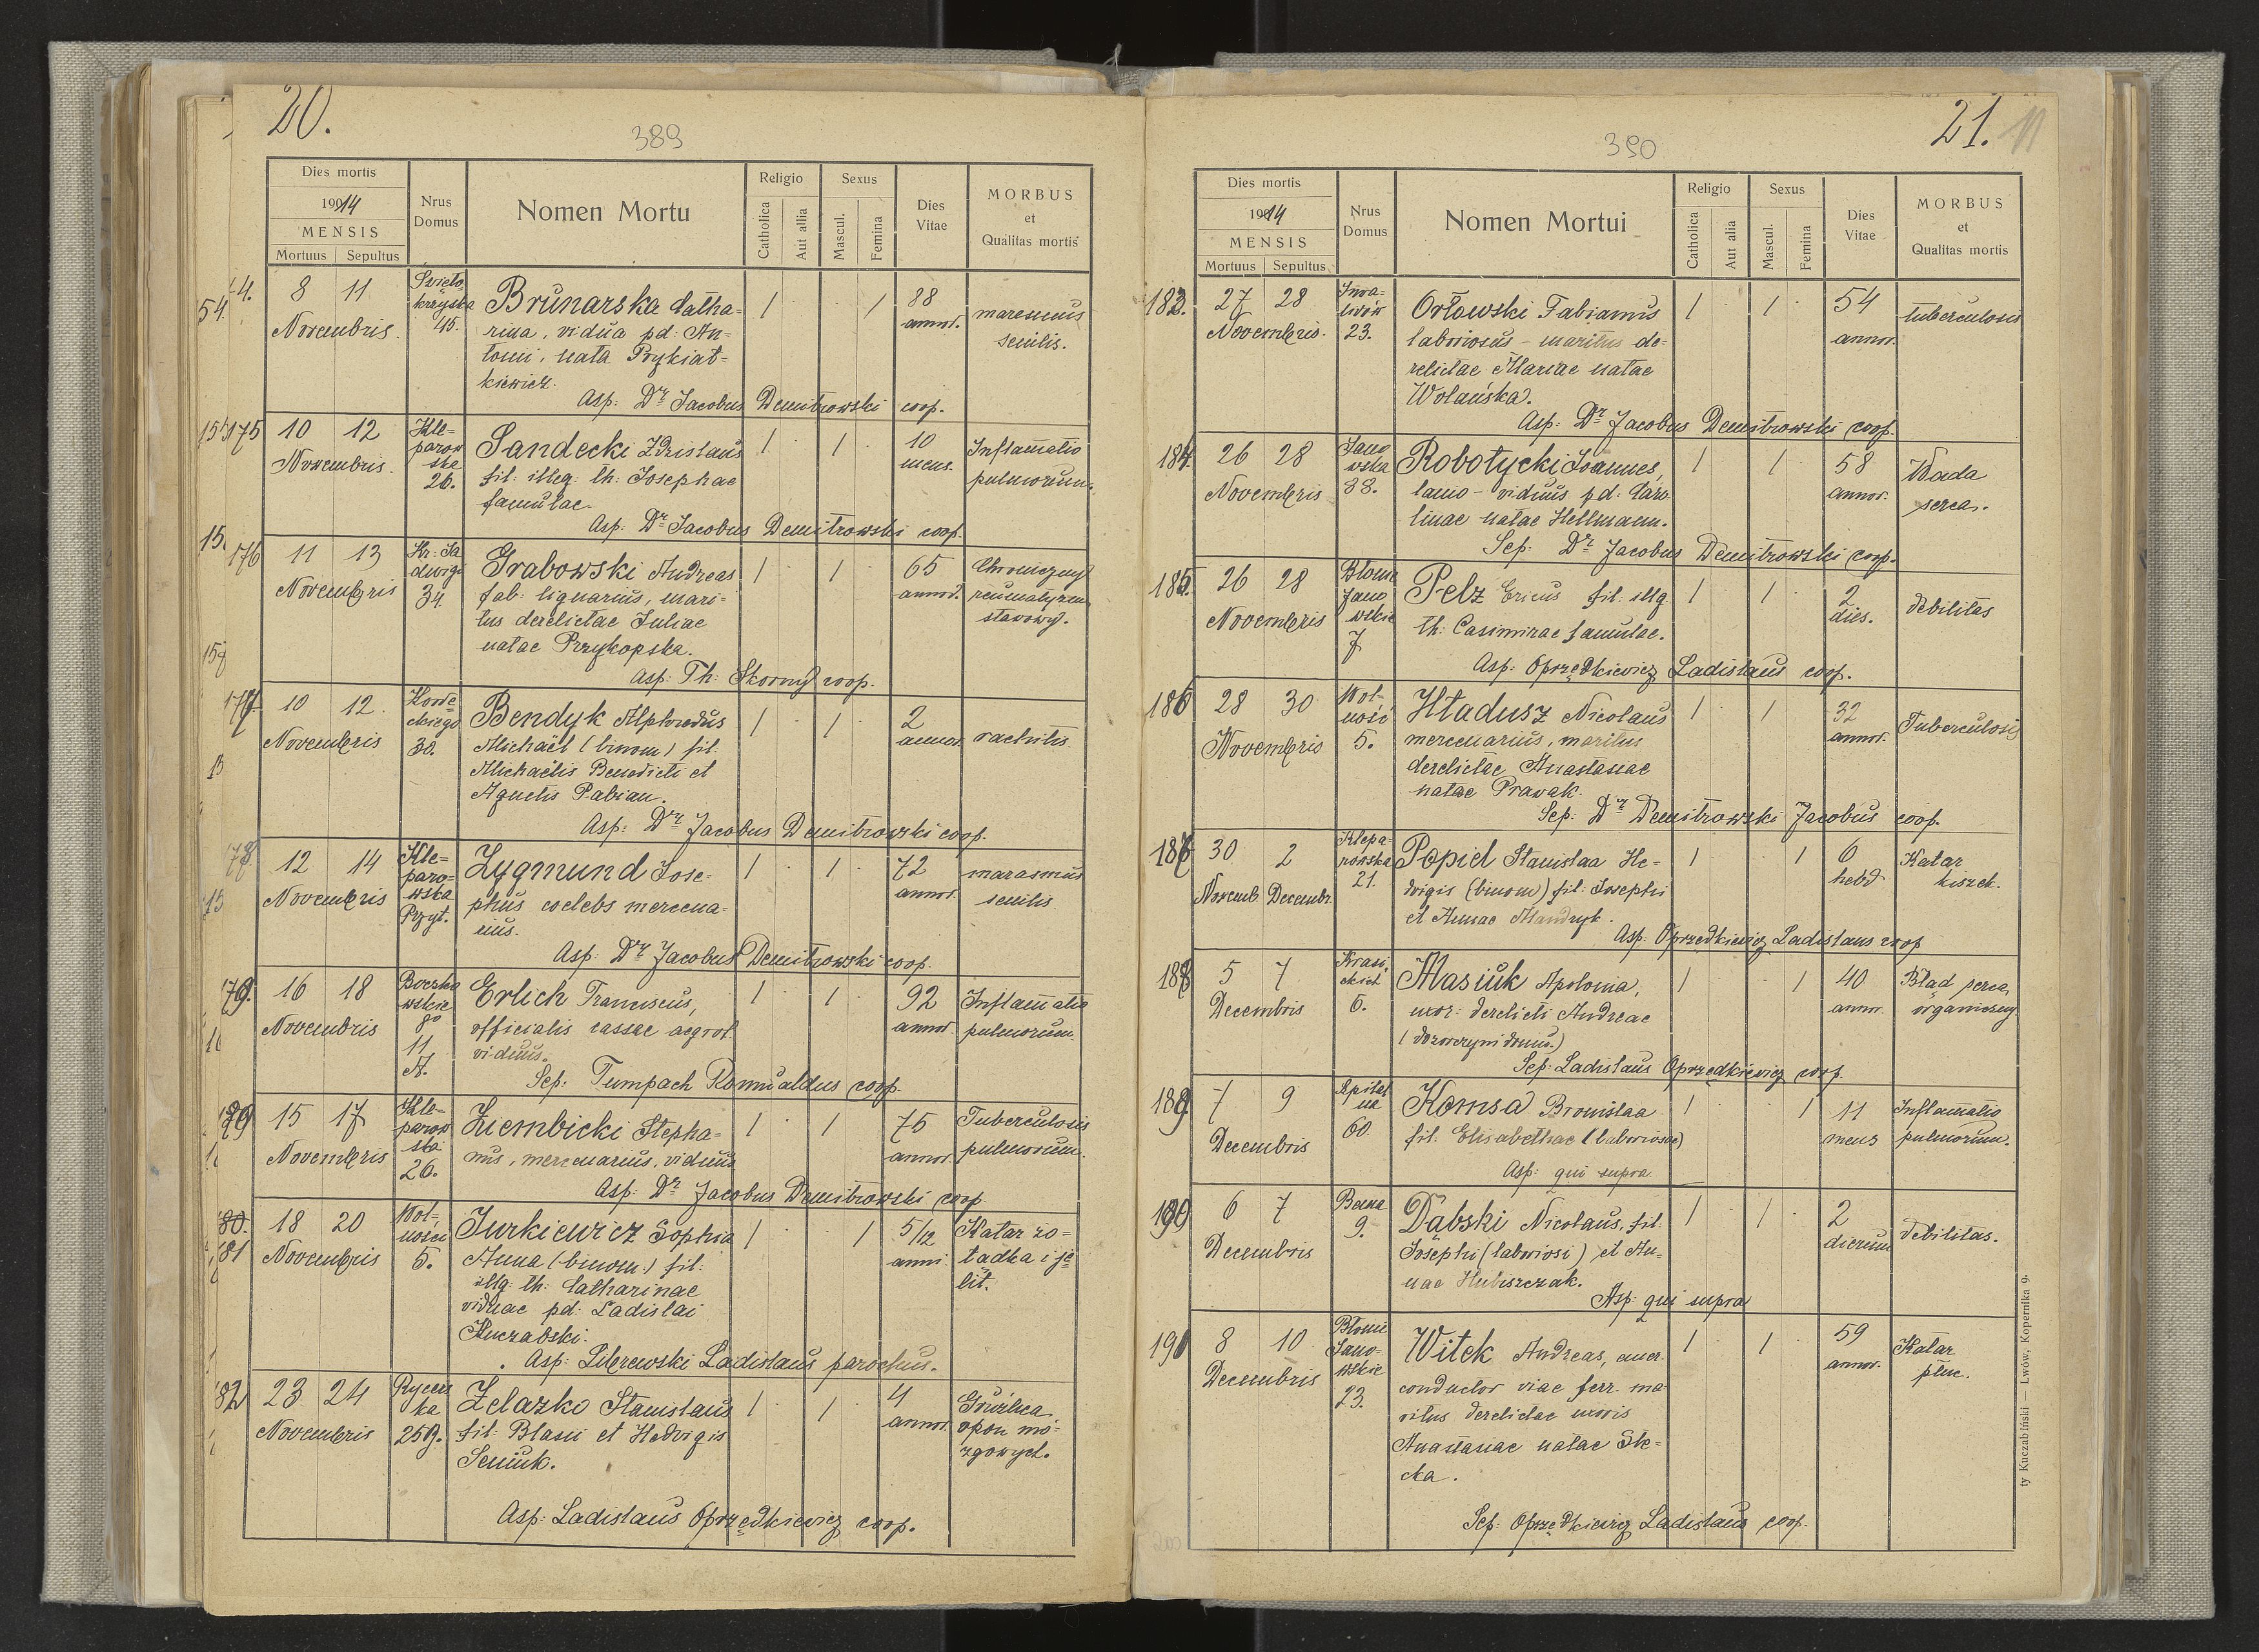 20.
389
Dies mortis
1914
MENSIS
Mortuus Sepultus
Nrus Domus
Nomen Mortu
Religio
Catholica
Aut allia
Sexus
Mascul.
Femina
Dies Vitae
MORBUS
et
Qualitas mortis
8 11
Novembris.
Święto-
krzyska
45.
Brunarska Catha=
rina, vidua pd. An=
tonii, nata Prykiat=
kiewicz.
1 1
88
annor.
maresmus
senilis.
Asp: Dr Jacobus Demitrowski coop.
175
10 12
Novembris.
Kle=
parow
ska
26.
Sandecki Zdzislaus
fil: illeg: th: Josephae
famulae.
1 1
10
mens.
Inflamatio
pulmorum.
Asp: Dr Jacobus Demitrowski coop.
176
11 13
Novembris
Kr: Ja
dwigi
34.
Grabowski Andreas
fab: lignarius, mari=
tus derelictae Juliae
natae Przykopska.
1 1
65
annor.
Chroniczny
reumatyzm
stawowy.
Asp: Th: Skorny coop.
177.
10 12.
Novembris
30.
Bendyk Alphredus
Michaël (binom) fil:
Michaëlis Benedicti et
Agnetis Pabian.
1 1
2
annor.
rachitis.
Asp: Dr Jacobus Demitrowski coop.
178
12 14
Novembris
Kle=
paro=
wska
Przyt.
Zygmund Jose=
phus coelebs mercena=
rius.
1 1
72
annor.
marasmus
senilis
Asp: Dr Jacobus Demitrowski coop.
179.
16 18
Novembris
11
A.
Erlich Franciscus,
officialis cassae aegrot.
viduus.
1 1
92
annor.
Inflamatio
pulmorum.
Sep: Tumpach Romualdus coop.
15 17
Novembris
Kle=
parow
ska
26.
Ziembicki Stepha=
nus, mercenarius, viduus
1 1
75
annor.
Tuberculosis
pulmorum.
Asp: Dr Jacobus Demitrowski coop.
181
18 20
Novembris
Wol=
ności
5.
Jurkiewicz Sophia
Anna (binom:) fil:
illg: th: Catharinae
viduae pd: Ladislai
Kuczabski.
1 1
5/12
anni
Katar żo=
łądka i je
lit.
Asp: Librewski Ladislaus parochus.
182
23 24
Novembris
Rycers
ka
259.
Zelazko Stanislaus
fil: Blasii et Hedvigis
Seniuk.
1 1
4
annor.
Gruźlica
opon mó=
zgowych.
Asp: Ladislaus Oprzędkiewicz coop.
21.
390
Dies mortis
1914
MENSIS
Mortuus Sepultus
Nrus Domus
Nomen Mortui
Religio
Catholica
Aut alia
Sexus
Mascul.
Femina
Dies Vitae
MORBUS
et
Qualitas mortis
183.
27 28
Novembris.
Inwa=
lidów
23.
Orłowski Fabianus
laboriosus - maritus de=
relictae Mariae natae
Wolańska.
1 1
54
annor.
tuberculosis
Asp: Dr Jacobus Demitrowski coop.
184.
26 28
Novembris
Jano
wska
88.
Robotycki Joannes,
lanio - viduus pd: Caro=
linae natae Hellmann.
1 1
58
annor.
Wada
serca.
Sep: Dr Jacobus Demitrowski coop.
185.
26 28
Novembris
Błonie
Jano
wskie
7
Pelz Ericus fil: illg.
th: Casimirae famulae.
1 1
2
dies.
debilitas
Asp: Oprzędkiewicz Ladislaus coop.
186
28 30
Novembris
Wol=
ność
5.
Hładusz Nicolaus
mercenarius, maritus
derelictae Anastasiae
natae Prawak.
1 1
32
annor.
Tuberculosis
Sep: Dr Demitrowski Jacobus coop.
187
30 2
Novemb. Decembr.
Klepa=
rowska
21.
Popiel Stanislaa He=
dvigis (binom) fil: Josephi
et Annae Mandryk.
1 1
6
hebd
Katar
kiszek.
Asp: Oprzedkiewicz Ladislaus coop
188
5 7
Decembris
Krasi
ckich
6.
Masiuk Apolonia,
uxor: derelicti Andreae
(dozorczyni domu.)
1 1
40
annor.
Błąd serca
organiczny
Sep: Ladislaus Oprzędkiewicz coop.
189
7 9
Decembris
Szpital
na
60.
Komsa Bronislaa
fil: Elisabethae (laboriosae)
1 1
11
mens
Inflamatio
pulmorum.
Asp: qui supra
190
6 7
Decembris
Bema
9.
Dąbski Nicolaus, fil:
Josephi (laboriosi) et An=
nae Hubiszczak.
1 1
2
dierum
debilitas.
Asp: qui supra
191
8 10
Decembris
Błonie
Jano=
wskie
23.
Witek Andreas, emer.
conductor viae ferr. ma
ritus derelictae uxoris
Anastasiae natae Ste=
cka.
1 1
59
annor.
Katar
płuc.
Sep: Oprzędkiewicz Ladislaus coop.
ty Kuczabiński — Lwów, Kopernika 9.